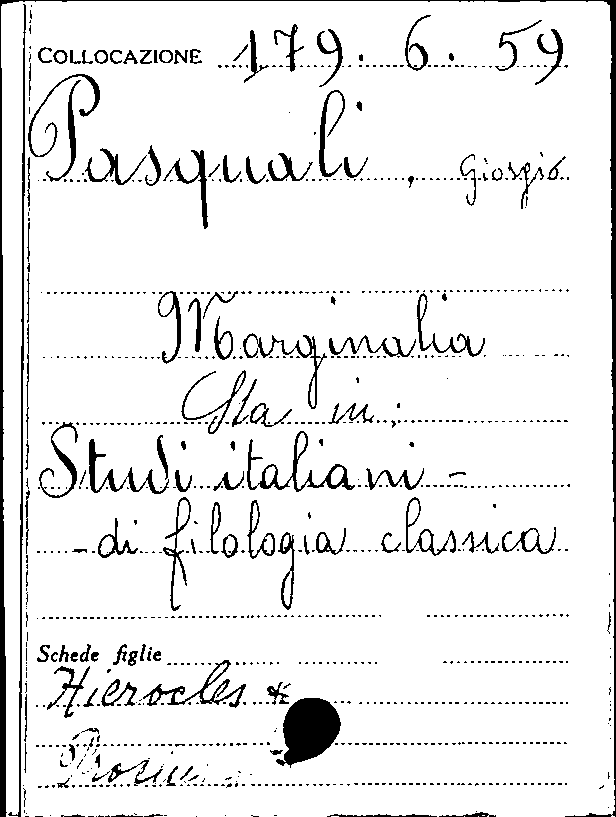 COLLOCAZIONE 179. 6. 59
Pasquali, Giorgio
Marginalia
Sta in:
Studi italiani -
- di filologia classica
Schede figlie
Hierocles